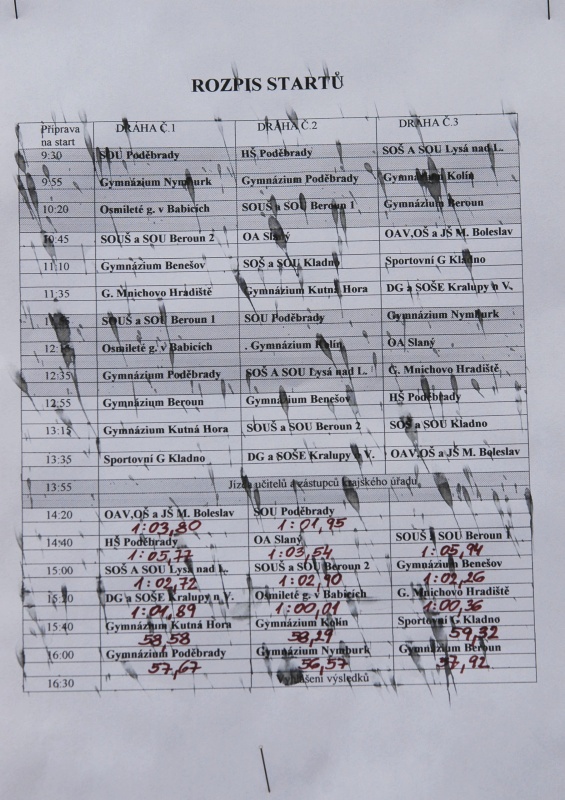 ROZPIS STARTŮ
Příprava na start DRÁHA Č.1 DRÁHA Č.2 DRÁHA Č.3
9:30 SOU Poděbrady HŠ Poděbrady SOŠ A SOU Lysá nad L.
9:55 Gymnázium Nymburk Gymnázium Poděbrady Gymnázium Kolín
10:20 Osmileté g. v Babicích SOUŠ a SOU Beroun 1 Gymnázium Beroun
10:45 SOUŠ a SOU Beroun 2 OA Slaný OAV,OŠ a JŠ M. Boleslav
11:10 Gymnázium Benešov SOŠ a SOU Kladno Sportovní G Kladno
11:35 G. Mnichovo Hradiště Gymnázium Kutná Hora DG a SOŠE Kralupy n V.
SOUŠ a SOU Beroun 1 SOU Poděbrady Gymnázium Nymburk
Osmileté g. v Babicích . Gymnázium Kolín OA Slaný
12:35 Gymnázium Poděbrady SOŠ A SOU Lysá nad L. G. Mnichovo Hradiště
12:55 Gymnázium Beroun Gymnázium Benešov HŠ Poděbrady
13:15 Gymnázium Kutná Hora SOUŠ a SOU Beroun 2 SOŠ a SOU Kladno
13:35 Sportovní G Kladno DG a SOŠE Kralupy n V. OAV,OŠ a JŠ M. Boleslav
13:55 Jízda učitelů a zástupců krajského úřadu
14:20 OAV,OŠ a JŠ M. Boleslav SOU Poděbrady
1:03,80 1:01,95
14:40 HŠ Poděbrady OA Slaný SOUŠ a SOU Beroun 1
1:05,77 1:03,54 1:05,94
15:00 SOŠ A SOU Lysá nad L. SOUŠ a SOU Beroun 2 Gymnázium Benešov
1:02,72 1:02,90 1:02,26
15:20 DG a SOŠE Kralupy n V. Osmileté g. v Babicích G. Mnichovo Hradiště
1:01,89 1:00,01 1:00,36
15:40 Gymnázium Kutná Hora Gymnázium Kolín Sportovní G Kladno
58,58 58,29 59,32
16:00 Gymnázium Poděbrady Gymnázium Nymburk Gymnázium Beroun
57,67 56,57 57,92
16:30 Vyhlášení výsledků